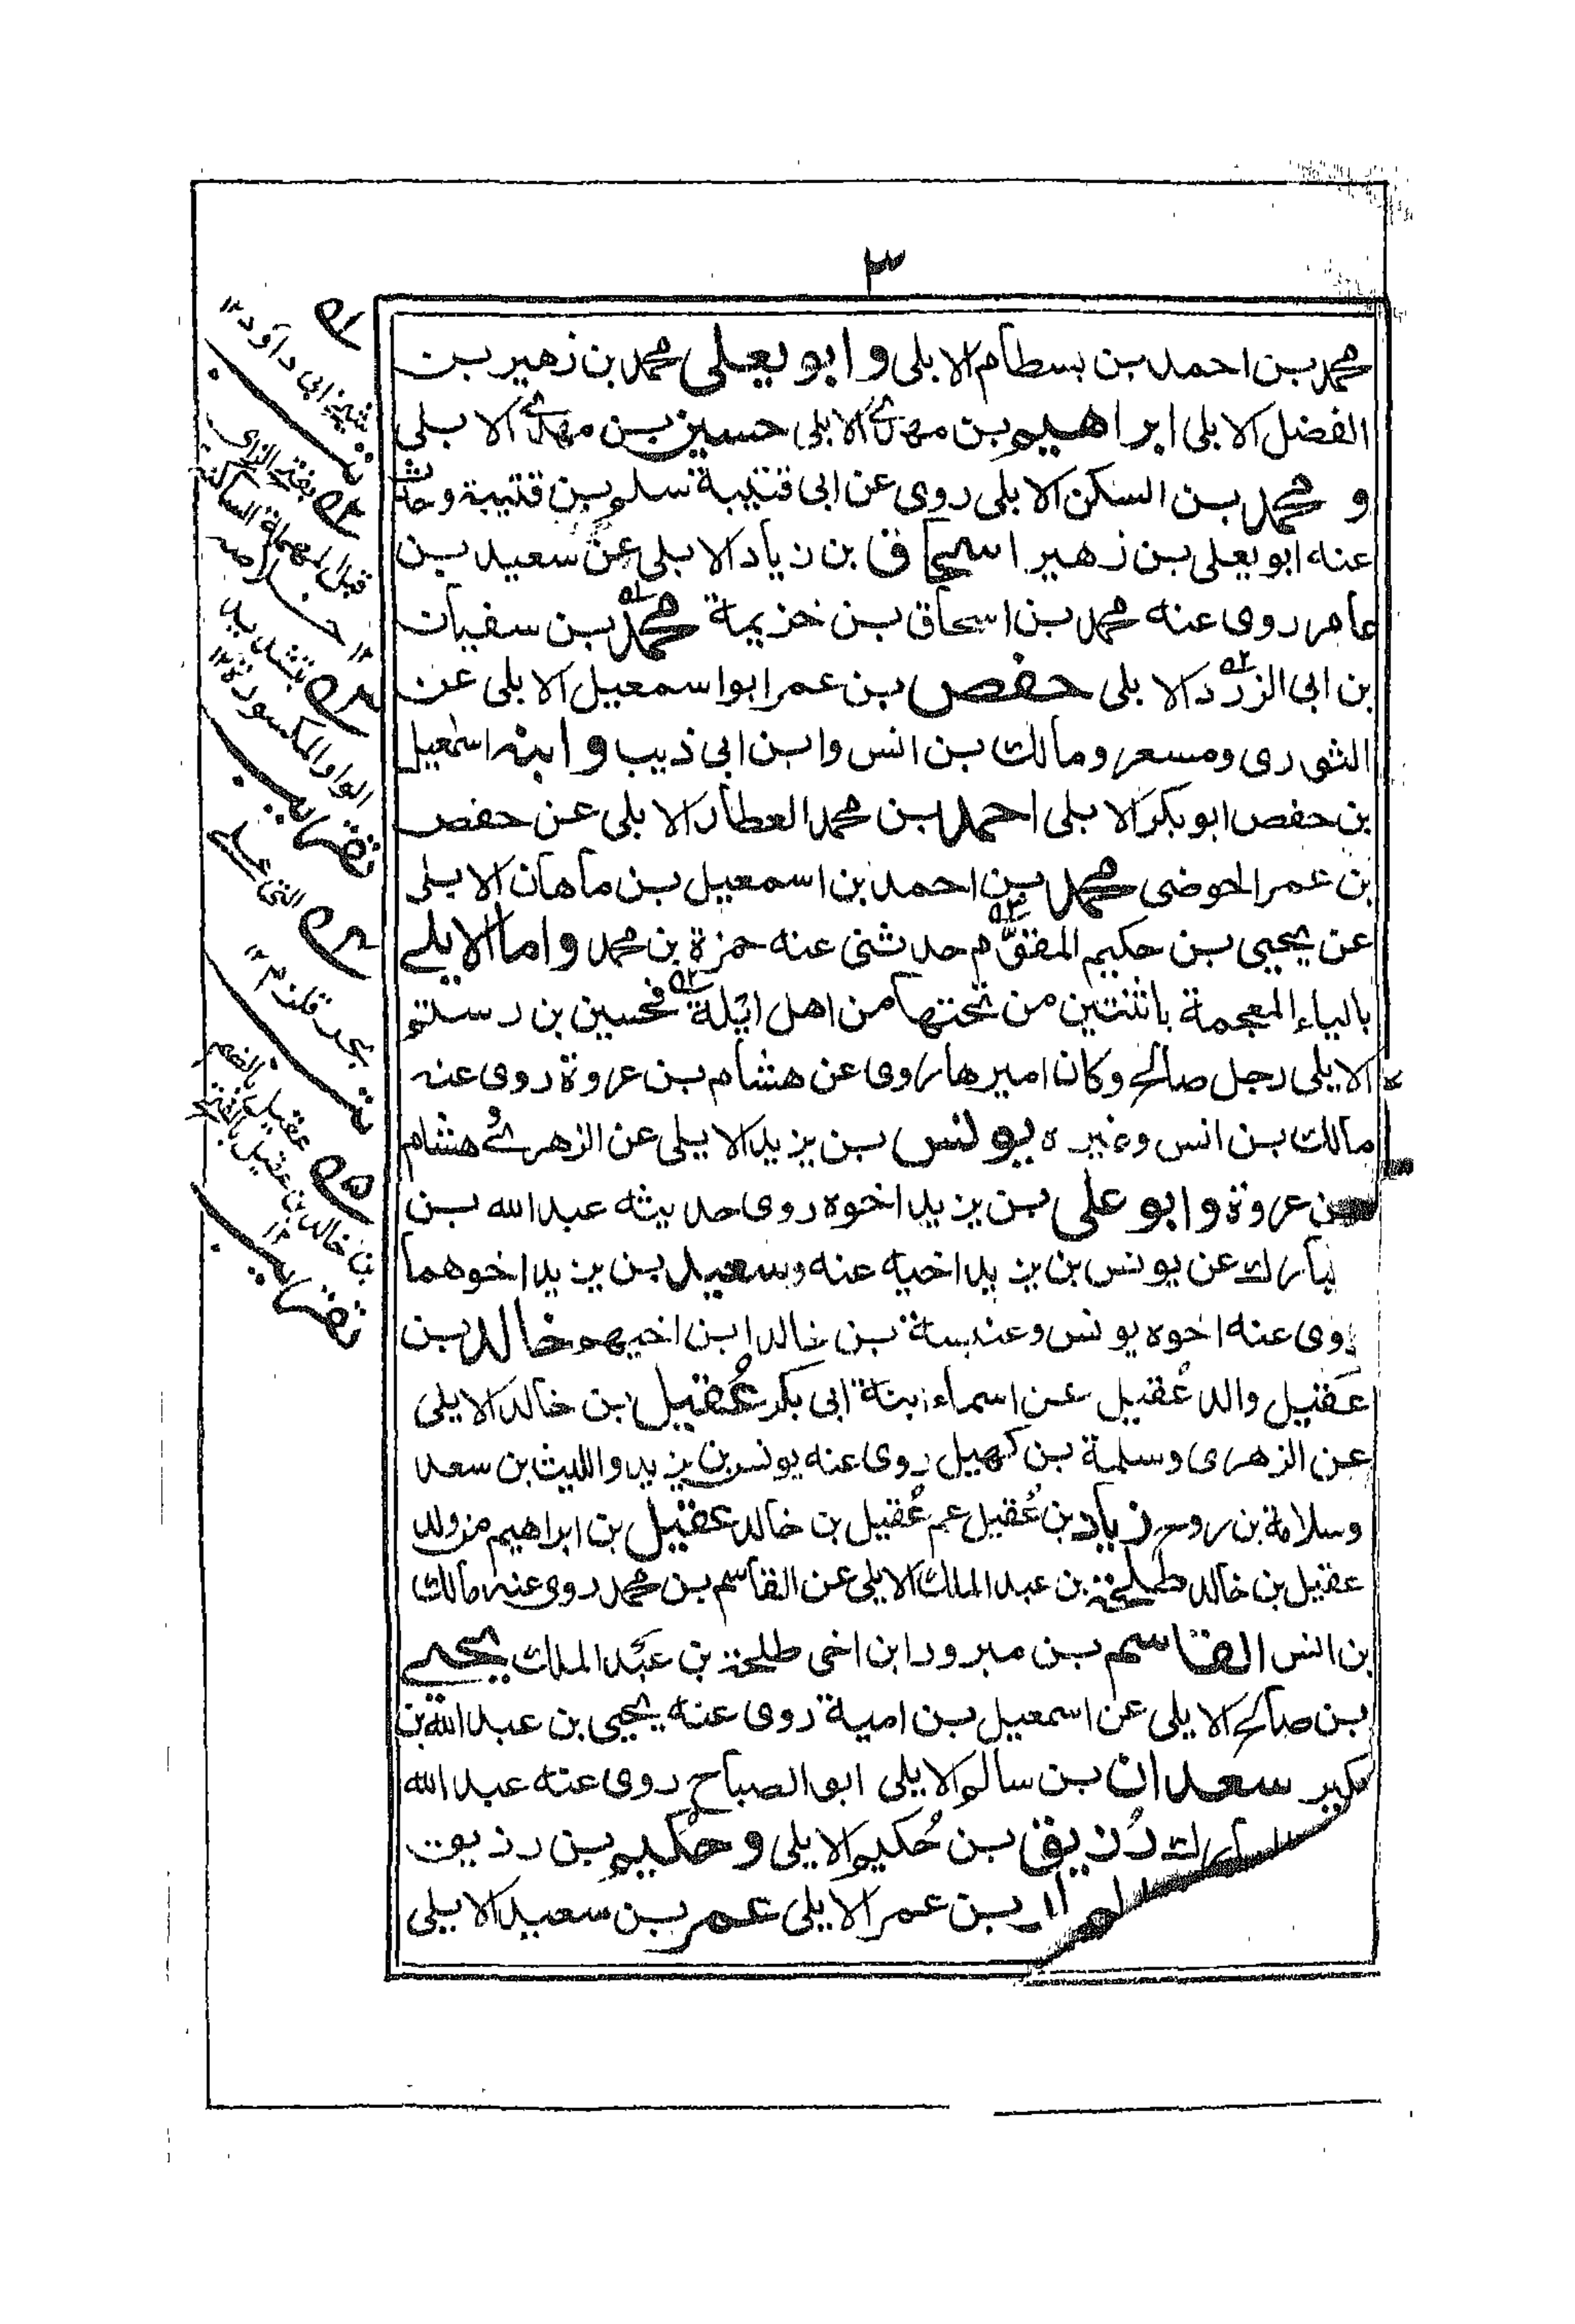 ٣
محمد بن احمد بن بسطام الابلى وابو يعلى محمد بن زهير بن
الفضل الابلى ابراهيم بن مهدى الابلى حسين بن مهدى الابلى
و محمد بن السكن الابلى روى عن ابى قتيبة سلم بن قتيبة وحدث
عنه ابو يعلى بن زهير اسحاق بن زياد الابلى عن سعيد بن
عامر روى عنه محمد بن اسحاق بن خزيمة محمد بن سفيان
بن ابى الزرد الابلى حفص بن عمر ابو اسمعيل الابلى عن
الثورى ومسعر ومالك بن انس وابن ابى ذيب وابنه اسمٰعيل
بن حفص ابو بكر الابلى احمد بن محمد العطار الابلى عن حفص
بن عمر الحوضى محمد بن احمد بن اسمعيل بن ماهان الابلى
عن يحيى بن حكيم المقوّم حدثنى عنه حمزة بن محمد واما الايلے
بالياء المعجمة باثنتين من تحتها من اهل ايلة فحسين بن رستم
الايلى رجل صالح وكان اميرها روى عن هشام بن عروة روى عنه
مالك بن انس وغيره يونس بن يزيد الايلى عن الزهرى هشام
بن عروة وابو على بن يزيد اخوه روى حديثه عبد الله بن
بارك عن يونس بن يزيد اخيه عنه وسعيد بن يزيد اخوهما
روى عنه اخوه يونس وعنبسة بن خالد ابن اخيهم خالد بن
عَقيل والد عُقيل عن اسماء ابنة ابى بكر عُقيل بن خالد الايلى
عن الزهرى وسلمة بن كهيل روى عنه يونس بن يزيد والليث بن سعد
وسلامة بن روح زياد بن عُقيل عم عُقيل بن خالد عقيل بن ابراهيم من ولد
عقيل بن خالد طلحة بن عبد الملك الايلى عن القاسم بن محمد روى عنه مالك
بن انس القاسم بن مبرور ابن اخى طلحة بن عبد الملك يحيے
بن صالح الايلى عن اسمعيل بن امية روى عنه يحيى بن عبد الله بن
بكير سعدان بن سالم الايلى ابو الصباح روى عنه عبد الله
رُزيق بن حُكيم الايلى وحكيم بن رزيق
بن عمر الايلى عمر بن سعيد الايلى
١
شيخ ابى داؤد ١٢
٢ بفتح الزاى
قبل المهملة الساكنة
١٢
٣ بتشديد
الواو المكسورة ١٢
تقريب
٤ التى على
بحر قلزم ١٢
٥ عقيل بالضم
بن خالد بن عقيل بالفتح
١٢
تقريب